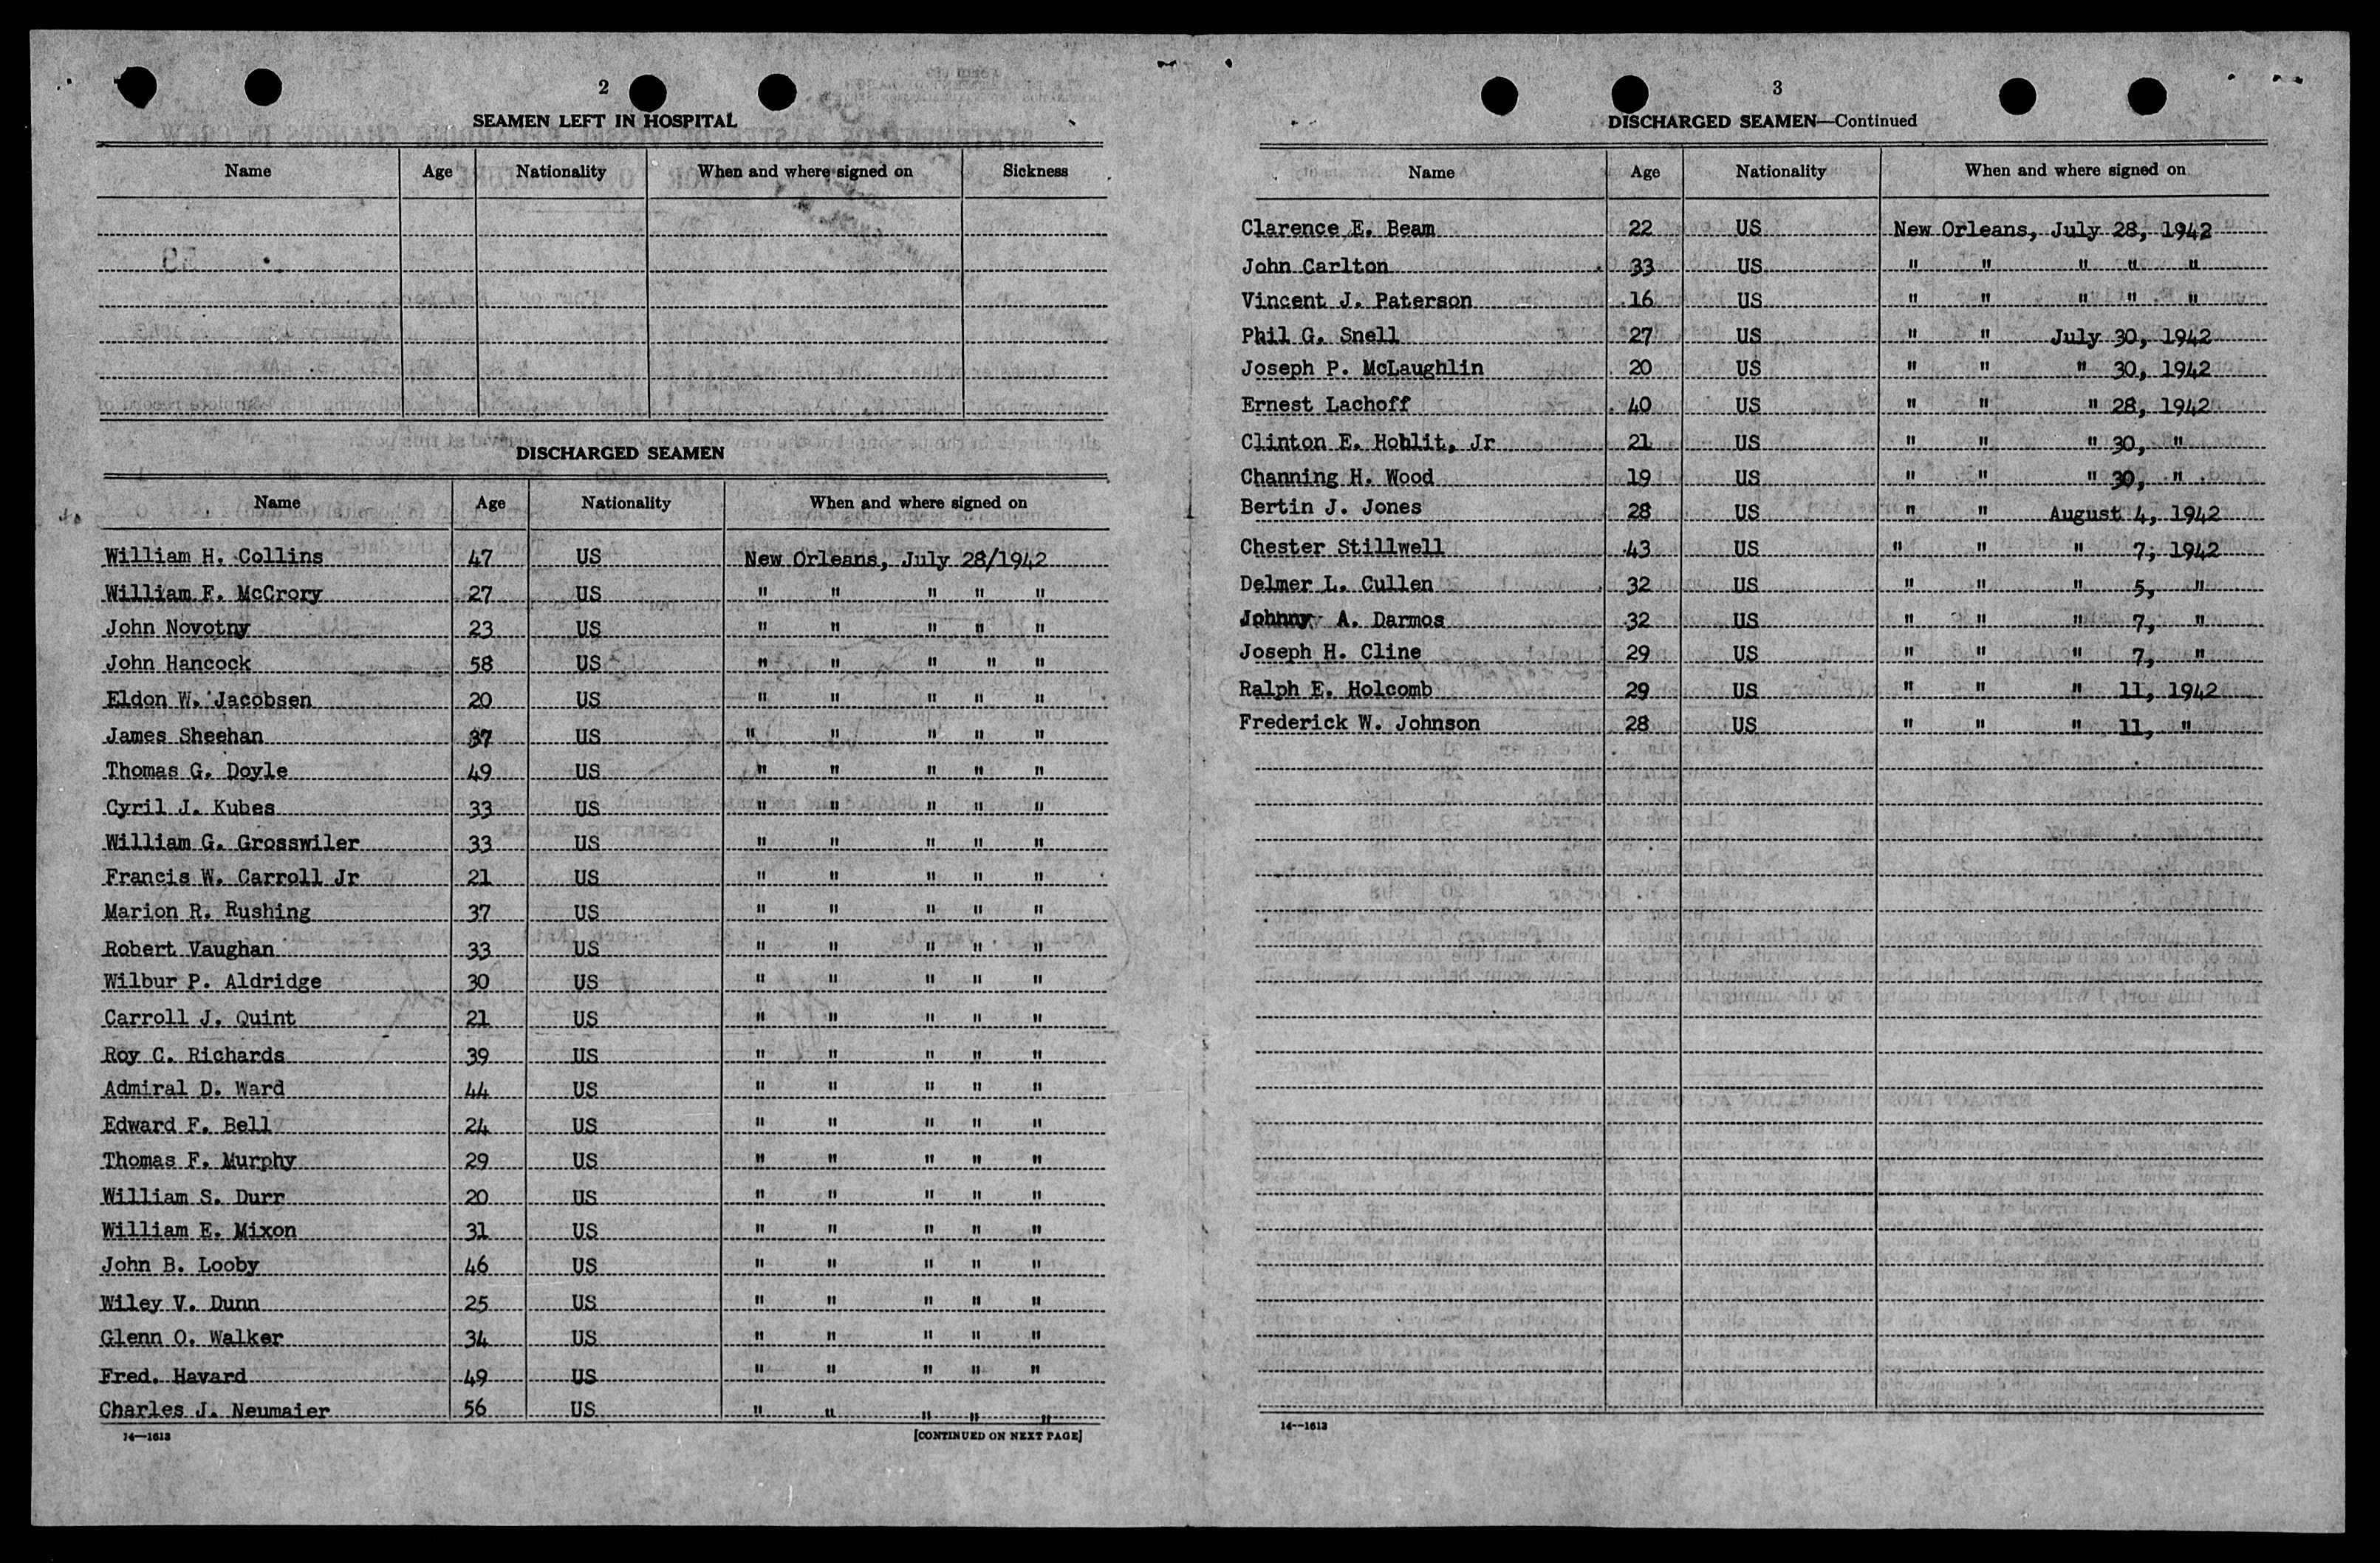 2
SEAMEN LEFT IN HOSPITAL
Name Age Nationality When and where signed on Sickness
DISCHARGED SEAMEN
Name Age Nationality When and where signed on
William H. Collins 47 US New Orleans, July 28/1942
William F. McCrory 27 US " " " " "
John Novotny 23 US " " " " "
John Hancock 58 US " " " " "
Eldon W. Jacobsen 20 US " " " " "
James Sheehan 37 US " " " " "
Thomas G. Doyle 49 US " " " " "
Cyril J. Kubes 33 US " " " " "
William G. Grosswiler 33 US " " " " "
Francis W. Carroll Jr 21 US " " " " "
Marion R. Rushing 37 US " " " " "
Robert Vaughan 33 US " " " " "
Wilbur P. Aldridge 30 US " " " " "
Carroll J. Quint 21 US " " " " "
Roy C. Richards 39 US " " " " "
Admiral D. Ward 44 US " " " " "
Edward F. Bell 24 US " " " " "
Thomas F. Murphy 29 US " " " " "
William S. Durr 20 US " " " " "
William E. Mixon 31 US " " " " "
John B. Looby 46 US " " " " "
Wiley V. Dunn 25 US " " " " "
Glenn O. Walker 34 US " " " " "
Fred. Havard 49 US " " " " "
Charles J. Neumaier 56 US " " " " "
14—1613 [CONTINUED ON NEXT PAGE]
3
DISCHARGED SEAMEN—Continued
Name Age Nationality When and where signed on
Clarence E. Beam 22 US New Orleans, July 28, 1942
John Carlton 33 US " " " " "
Vincent J. Paterson 16 US " " " " "
Phil G. Snell 27 US " " July 30, 1942
Joseph P. McLaughlin 20 US " " " 30, 1942
Ernest Lachoff 40 US " " " 28, 1942
Clinton E. Hohlit, Jr 21 US " " " 30, "
Channing H. Wood 19 US " " " 30, "
Bertin J. Jones 28 US " " August 4, 1942
Chester Stillwell 43 US " " " 7, 1942
Delmer L. Cullen 32 US " " " 5, "
Johnny A. Darmos 32 US " " " 7, "
Joseph H. Cline 29 US " " " 7, "
Ralph E. Holcomb 29 US " " " 11, 1942
Frederick W. Johnson 28 US " " " 11, "
14—1613